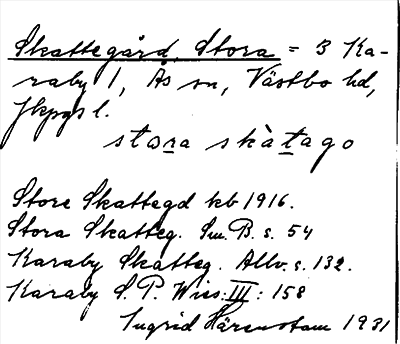 Skattegård, Stora = 3 Ka-
raby 1, Ås sn, Västbo hd,
Jkpgs l.
stora skàtago
Store Skattegd kb 1916.
Stora Skatteg. Sm. B. s. 54
Karaby Skatteg. Allv. s. 132.
Karaby S. P. Wies: III: 158
Ingrid Härenstam 1931